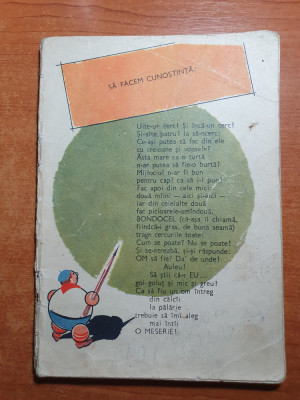 SĂ FACEM CUNOȘTINȚĂ
Uite-un cerc! Și încă-un cerc!
Și-alte patru! Ia să-ncerc:
Ce-ași putea să fac din ele
cu creioane și vopsele?
Asta mare ca o turtă
n-ar putea să fie-o burtă?
Mijlociul n-ar fi bun
pentru cap? ca să i-l pun!
Fac apoi din cele mici
două mîini — aici și-aici —
iar din celelalte două
fac picioarele-amîndouă,
BONDOCEL (că-așa îl chiamă,
fiindcă-i gras, de bună seamă)
trage cercurile toate!
Cum se poate? Nu se poate!
Și se-ntreabă, și-și răspunde:
OM să fie? Da' de unde!
Auleu!
Să știi că-s EU...
gol-goluț și mic și greu!
Ca să fiu un om întreg
din călcîi
la pălărie
trebuie să îmi aleg
mai întîi
O MESERIE!